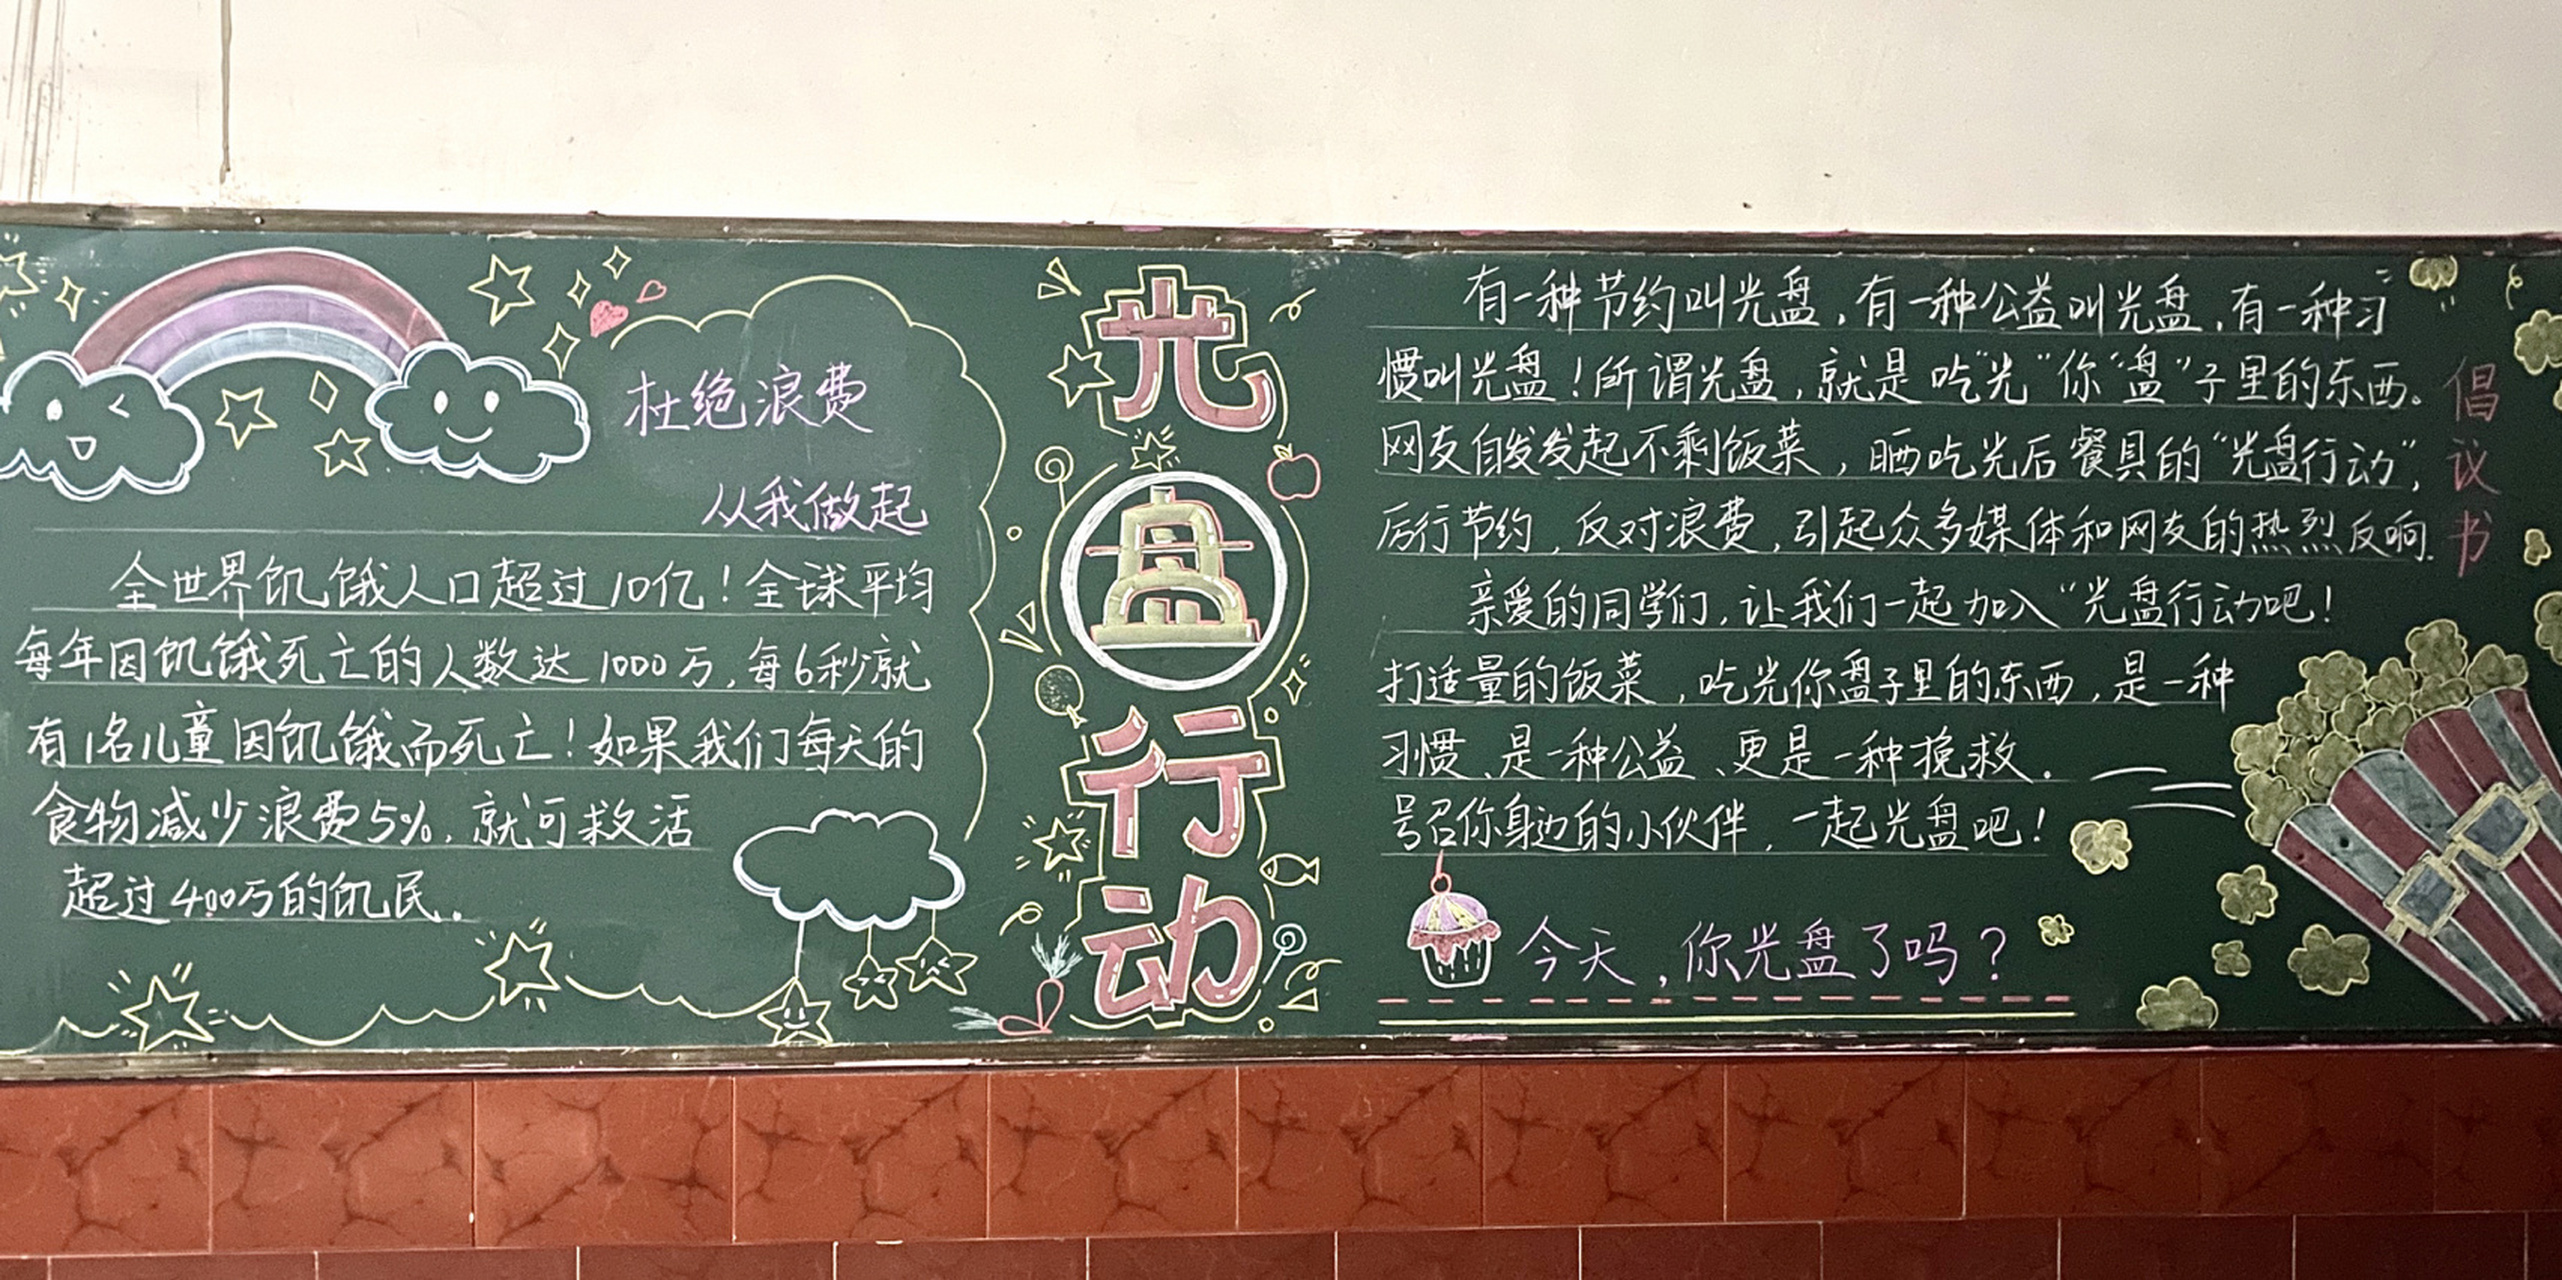 杜绝浪费
从我做起
全世界饥饿人口超过10亿！全球平均
每年因饥饿死亡的人数达1000万，每6秒就
有1名儿童因饥饿而死亡！如果我们每天的
食物减少浪费5%，就可救活
超过400万的饥民。
光
盘
行
动
有一种节约叫光盘，有一种公益叫光盘，有一种习
惯叫光盘！所谓光盘，就是吃“光”你“盘”子里的东西。
网友自发发起不剩饭菜，晒吃光后餐具的“光盘行动”，
厉行节约，反对浪费，引起众多媒体和网友的热烈反响。
亲爱的同学们，让我们一起加入“光盘行动吧！
打适量的饭菜，吃光你盘子里的东西，是一种
习惯、是一种公益、更是一种挽救。
号召你身边的小伙伴，一起光盘吧！
今天，你光盘了吗？
倡
议
书